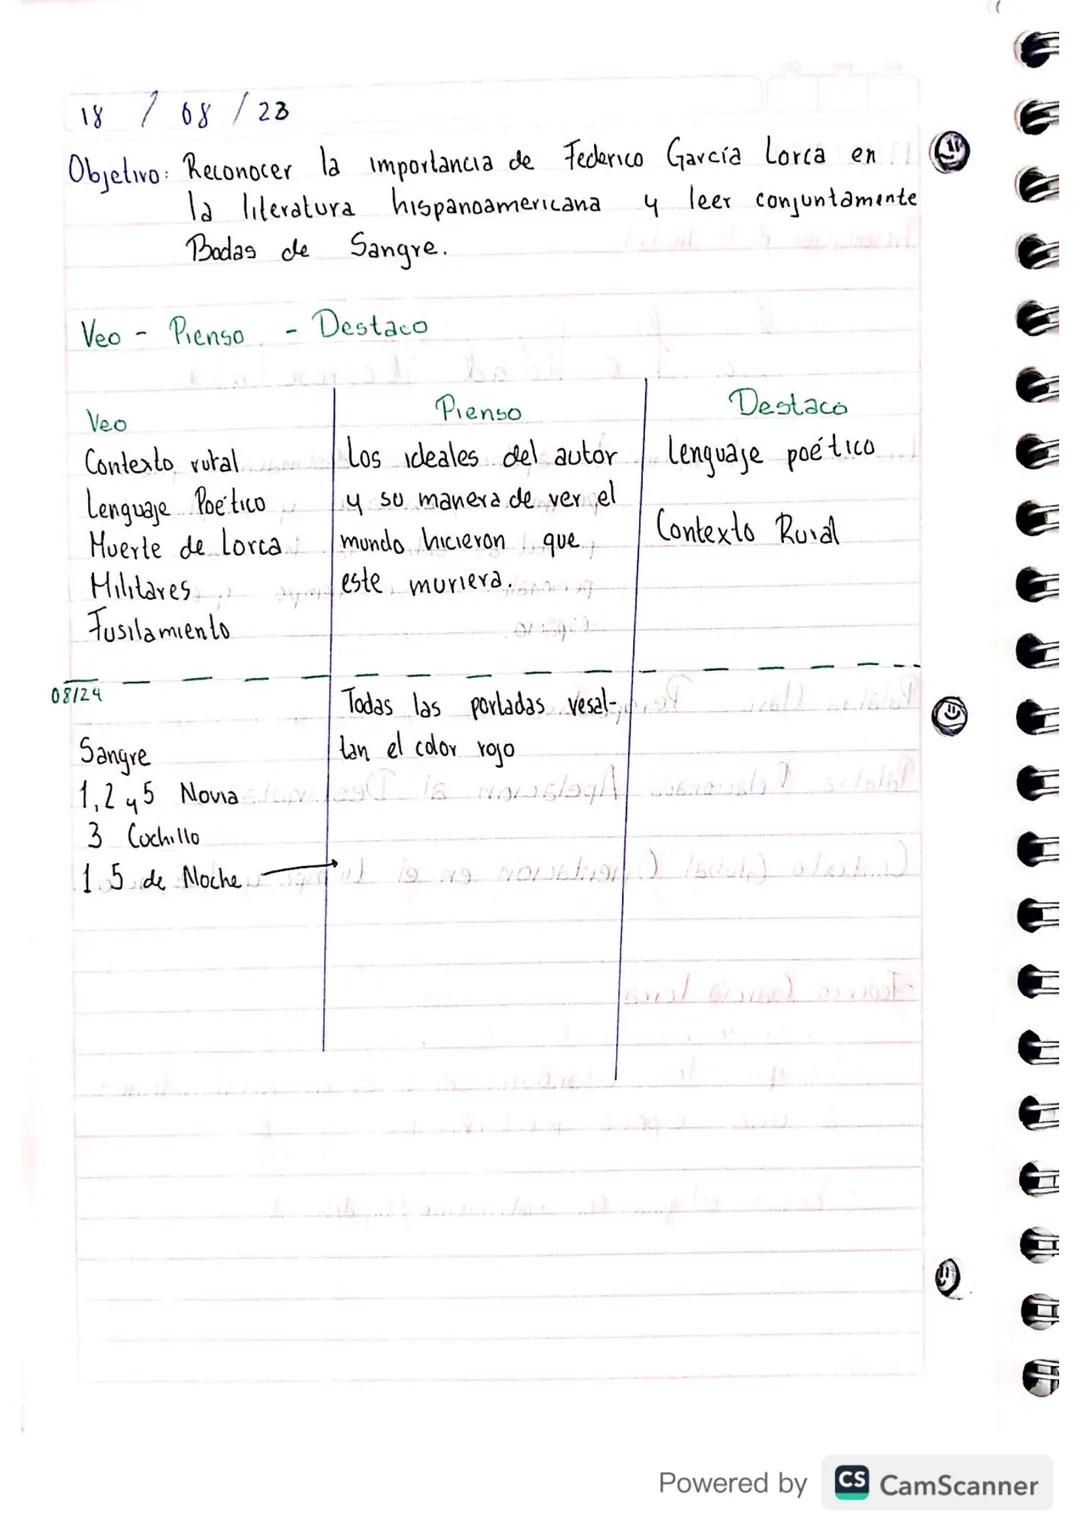 18 / 08 / 23
Objetivo: Reconocer la importancia de Federico García Lorca en
la literatura hispanoamericana y leer conjuntamente
Bodas de Sangre.
Veo - Pienso - Destaco
Veo
Contexto rural
Lenguaje Poético
Muerte de Lorca
Militares
Fusilamiento
Pienso
Los ideales del autor
y su manera de ver el
mundo hicieron que
este muriera.
Destaco
Lenguaje poético
Contexto Rural
08/24
Sangre
1, 2 y 5 Novia
3 Cuchillo
1 5 de Noche
Todas las portadas vesal-
tan el color rojo
Powered by CS CamScanner